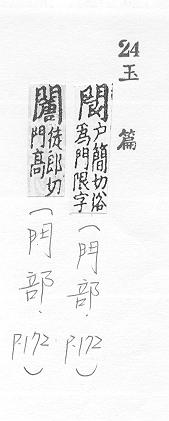 24 玉篇
户簡切俗
爲門限字
(門部. P.172)
徒郎切
門高
(門部. P.172)